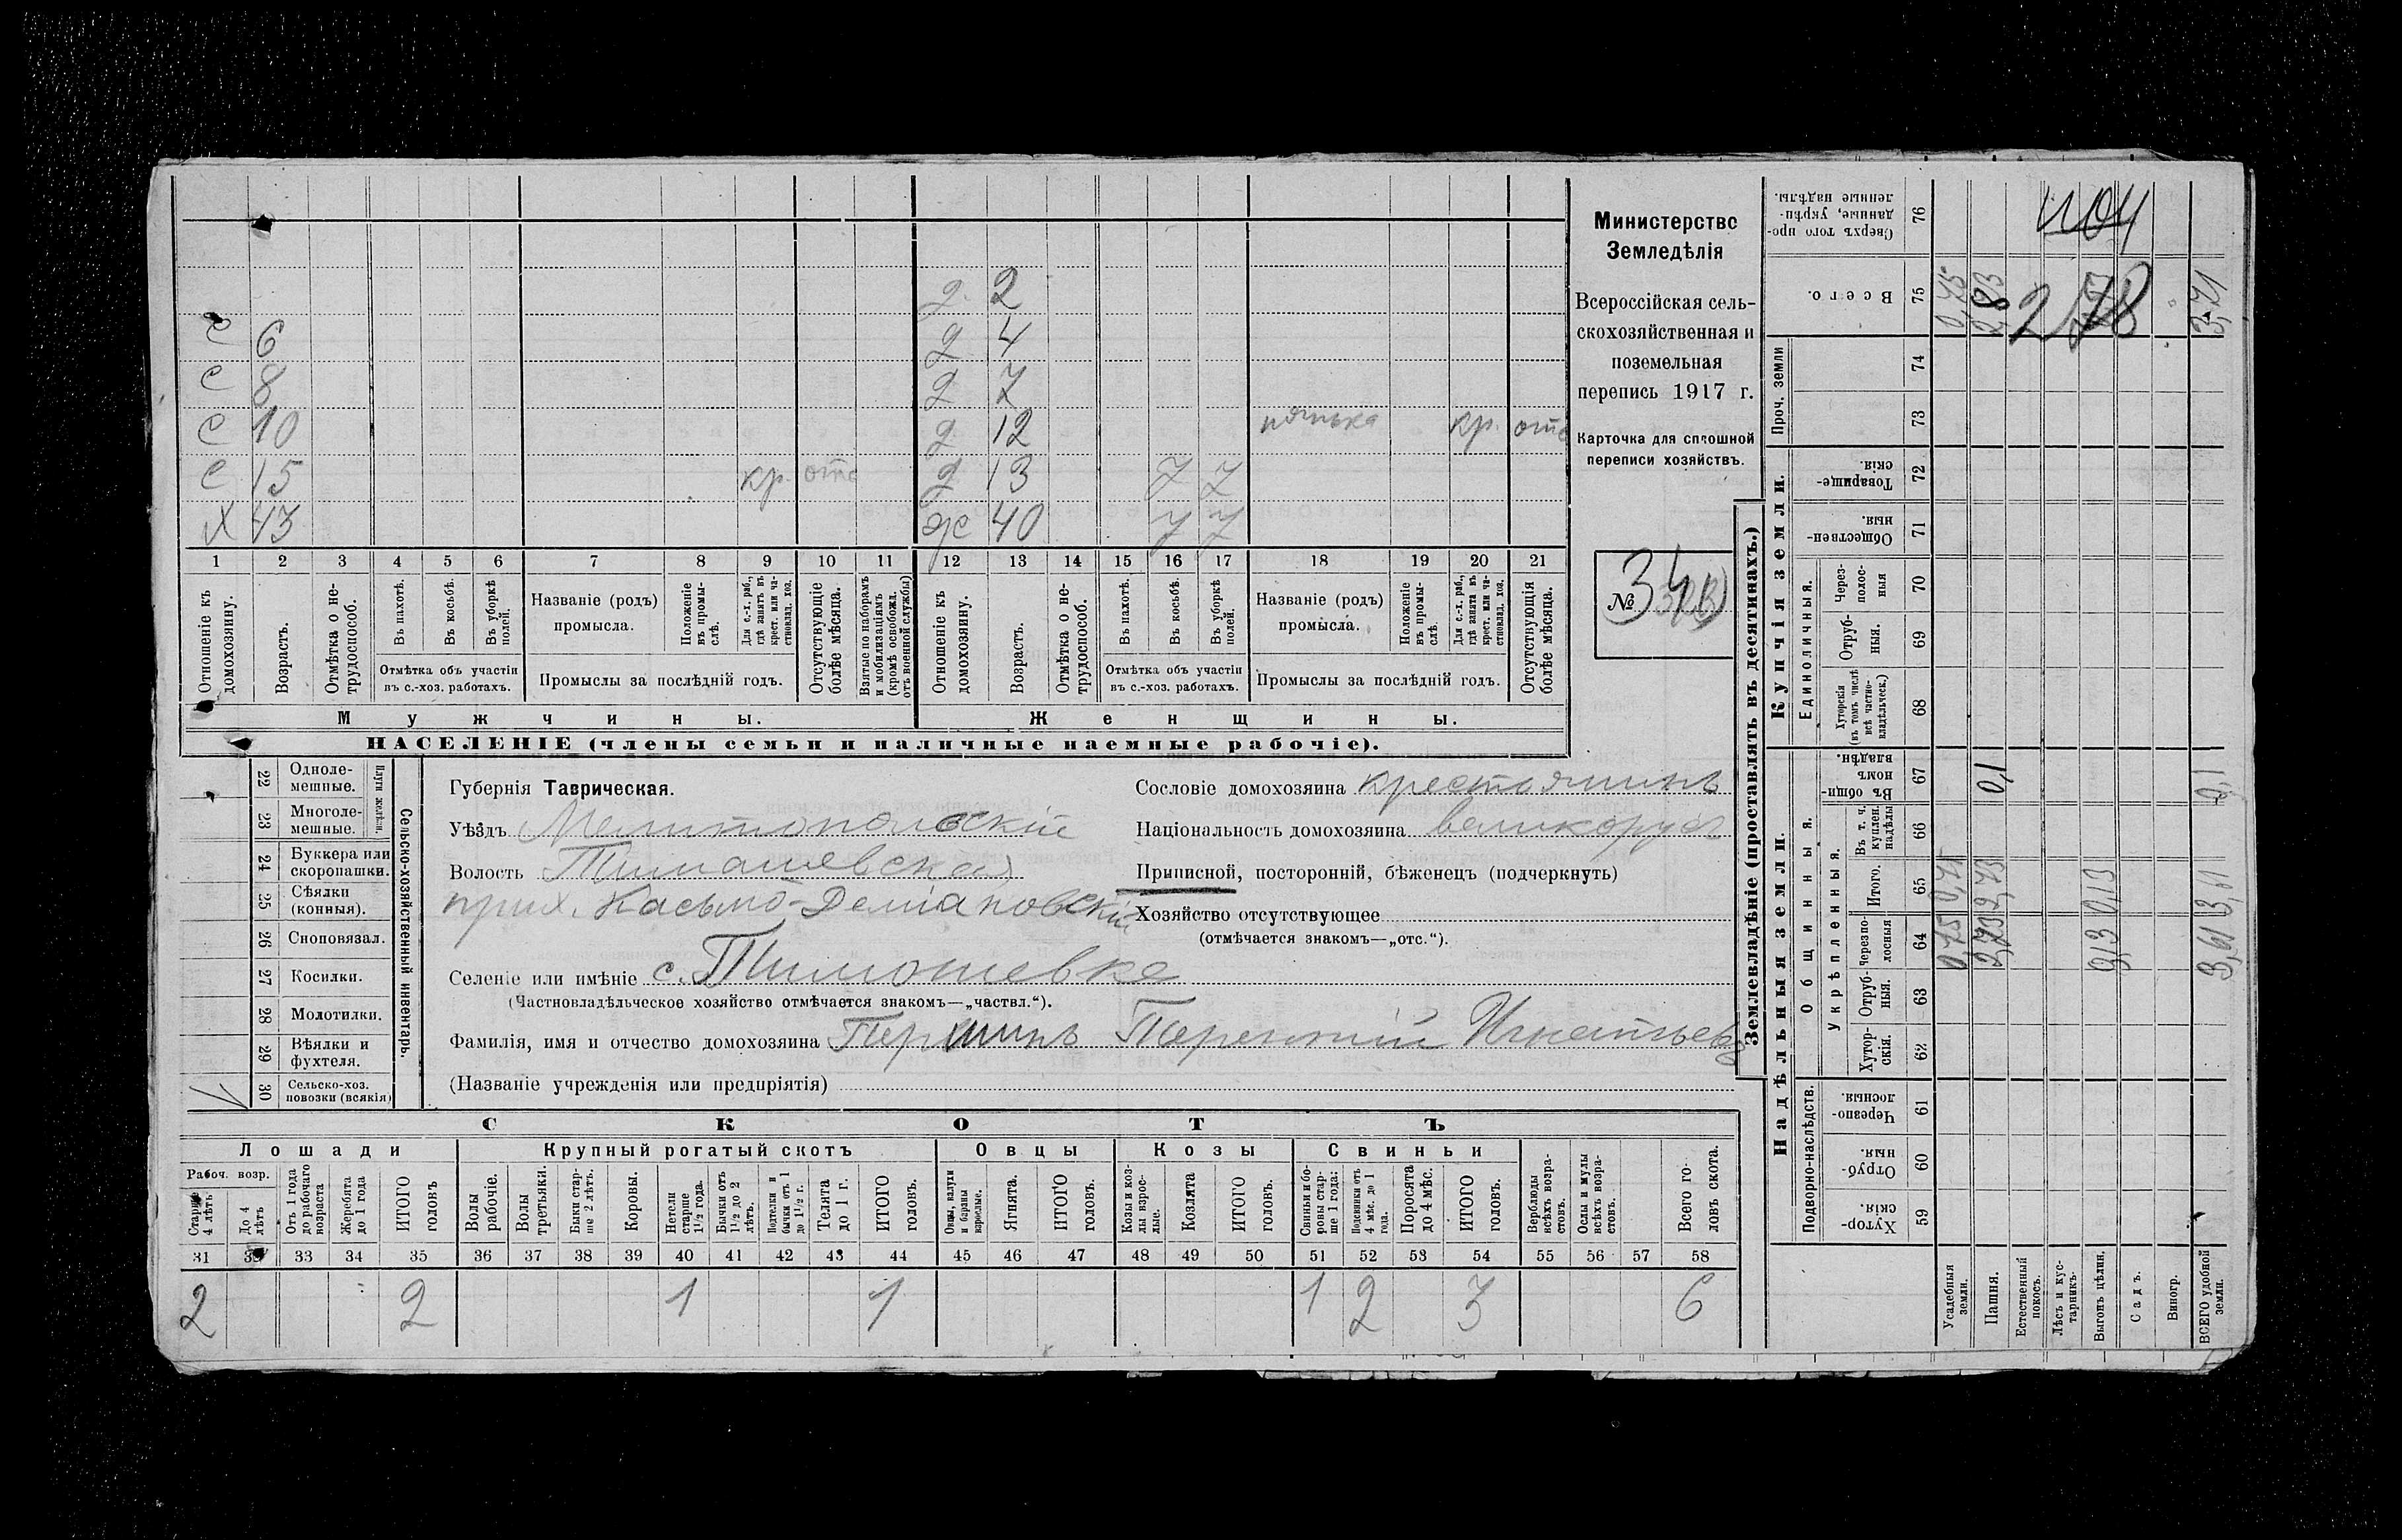 д. 2
с 6 д 4
с 8 д 7
с 10 д. 12 нянька кр. отс
с 15 кр. отс д 13 7 7
Х 43 ж 40 7 7
1 2 3 4 5 6 7 8 9 10 11 12 13 14 15 16 17 18 19 20 21
Отношеніе къ домохозяину.
Возрастъ.
Отмѣтка о не-трудоспособ.
Въ пахотѣ.
Въ косьбѣ.
Въ уборкѣ полей.
Отмѣтка объ участіи
въ с.-хоз. работахъ.
Названіе (родъ)
промысла.
Положеніе въ промы-слѣ.
Для с.-х. раб., гдѣ занятъ въ крест. или ча-стновлад. хоз.
Промыслы за послѣдній годъ.
Отсутствующіе болѣе мѣсяца.
Взятые по наборамъ и мобилизаціямъ (кромѣ освобожд. отъ военной службы)
Отношеніе къ домохозяину.
Возрастъ.
Отмѣтка о не-трудоспособ.
Въ пахотѣ.
Въ косьбѣ.
Въ уборкѣ полей.
Отмѣтка объ участіи
въ с.-хоз. работахъ.
Названіе (родъ)
промысла.
Положеніе въ промы-слѣ.
Для с.-х. раб., гдѣ занята въ крест. или ча-стновлад. хоз.
Промыслы за послѣдній годъ.
Отсутствующія болѣе мѣсяца.
Мужчины.
Женщины.
НАСЕЛЕНІЕ (члены семьи и наличные наемные рабочіе).
Министерство
Земледѣлія
Всероссійская сель-
скохозяйственная и
поземельная
перепись 1917 г.
Карточка для сплошной
переписи хозяйствъ.
№ 34
22 Одноле-мешные.
23 Многоле-мешные.
Плуги желѣзн.
24 Буккера или скоропашки.
25 Сѣялки (конныя).
26 Сноповязал.
27 Косилки.
28 Молотилки.
29 Вѣялки и фухтеля.
30 Сельско-хоз. повозки (всякія)
Сельско-хозяйственный инвентарь.
Губернія Таврическая.
Уѣздъ Мелитопольскій
Волость Тимашевская
прих. Касьмо-Деміановскій
Селеніе или имѣніе с. Тимошевка
(Частновладѣльческое хозяйство отмѣчается знакомъ—„частвл.“).
Фамилія, имя и отчество домохозяина Першинъ Терентій Игнатьевъ
(Названіе учрежденія или предпріятія)
Сословіе домохозяина крестьянинъ
Національность домохозяина великорус
Приписной, посторонній, бѣженецъ (подчеркнуть)
Хозяйство отсутствующее
(отмѣчается знакомъ—„отс.“).
СКОТЪ
Лошади
Крупный рогатый скотъ
Овцы
Козы
Свиньи
Рабоч. возр.
Старше 4 лѣтъ
До 4 лѣтъ
Отъ 1 года до рабочаго возраста
Жеребята до 1 года
ИТОГО головъ
Волы рабочіе.
Волы третьяки.
Быки стар-ше 2 лѣтъ.
Коровы.
Нетели старше 1½ года.
Бычки отъ 1½ до 2 лѣтъ.
Подтелки и бычки отъ 1 до 1½ г.
Телята до 1 г.
ИТОГО головъ.
Овцы, валухи и бараны взрослые.
Ягнята.
ИТОГО головъ.
Козы и коз-лы взрос-лые.
Козлята
ИТОГО головъ.
Свиньи и бо-ровы стар-ше 1 года.
Подсвинки отъ 4 мѣс. до 1 года.
Поросята до 4 мѣс.
ИТОГО головъ.
Верблюды всѣхъ возра-стовъ.
Ослы и мулы всѣхъ возра-стовъ.
Всего го-ловъ скота.
31 32 33 34 35 36 37 38 39 40 41 42 43 44 45 46 47 48 49 50 51 52 53 54 55 56 57 58
2 2 1 1 1 2 3 6
Землевладѣніе (проставлять въ десятинахъ.)
Надѣльныя земли.
Купчія земли.
Проч. земли
Подворно-наслѣдств.
Общинныя.
Укрѣпленныя.
Единоличныя.
59 Хутор-скія.
60 Отруб-ныя.
61 Черезпо-лосныя.
62 Хутор-скія.
63 Отруб-ныя.
64 Черезпо-лосныя
65 Итого.
66 Въ т. ч. куплен. надѣлы
67 Въ общи-номъ владѣн.
68 Хуторскія (въ томъ числѣ всѣ частно-владѣльческ.)
69 Отруб-ныя.
70 Через-полос-ныя
71 Обществен-ныя.
72 Товарище-скія.
73
74
75 Всего.
76 Сверхъ того про-данные, укрѣп-ленные надѣлы.
Усадебныя земли. 0,75
Пашня. 2,73 2,73 0,1 2,83
Естественный покосъ.
Лѣсъ и кус-тарникъ.
Выгонъ цѣлин. 0,13
Садъ.
Виногр.
ВСЕГО удобной земли. 3,61 3,61 0,1 3,71
278